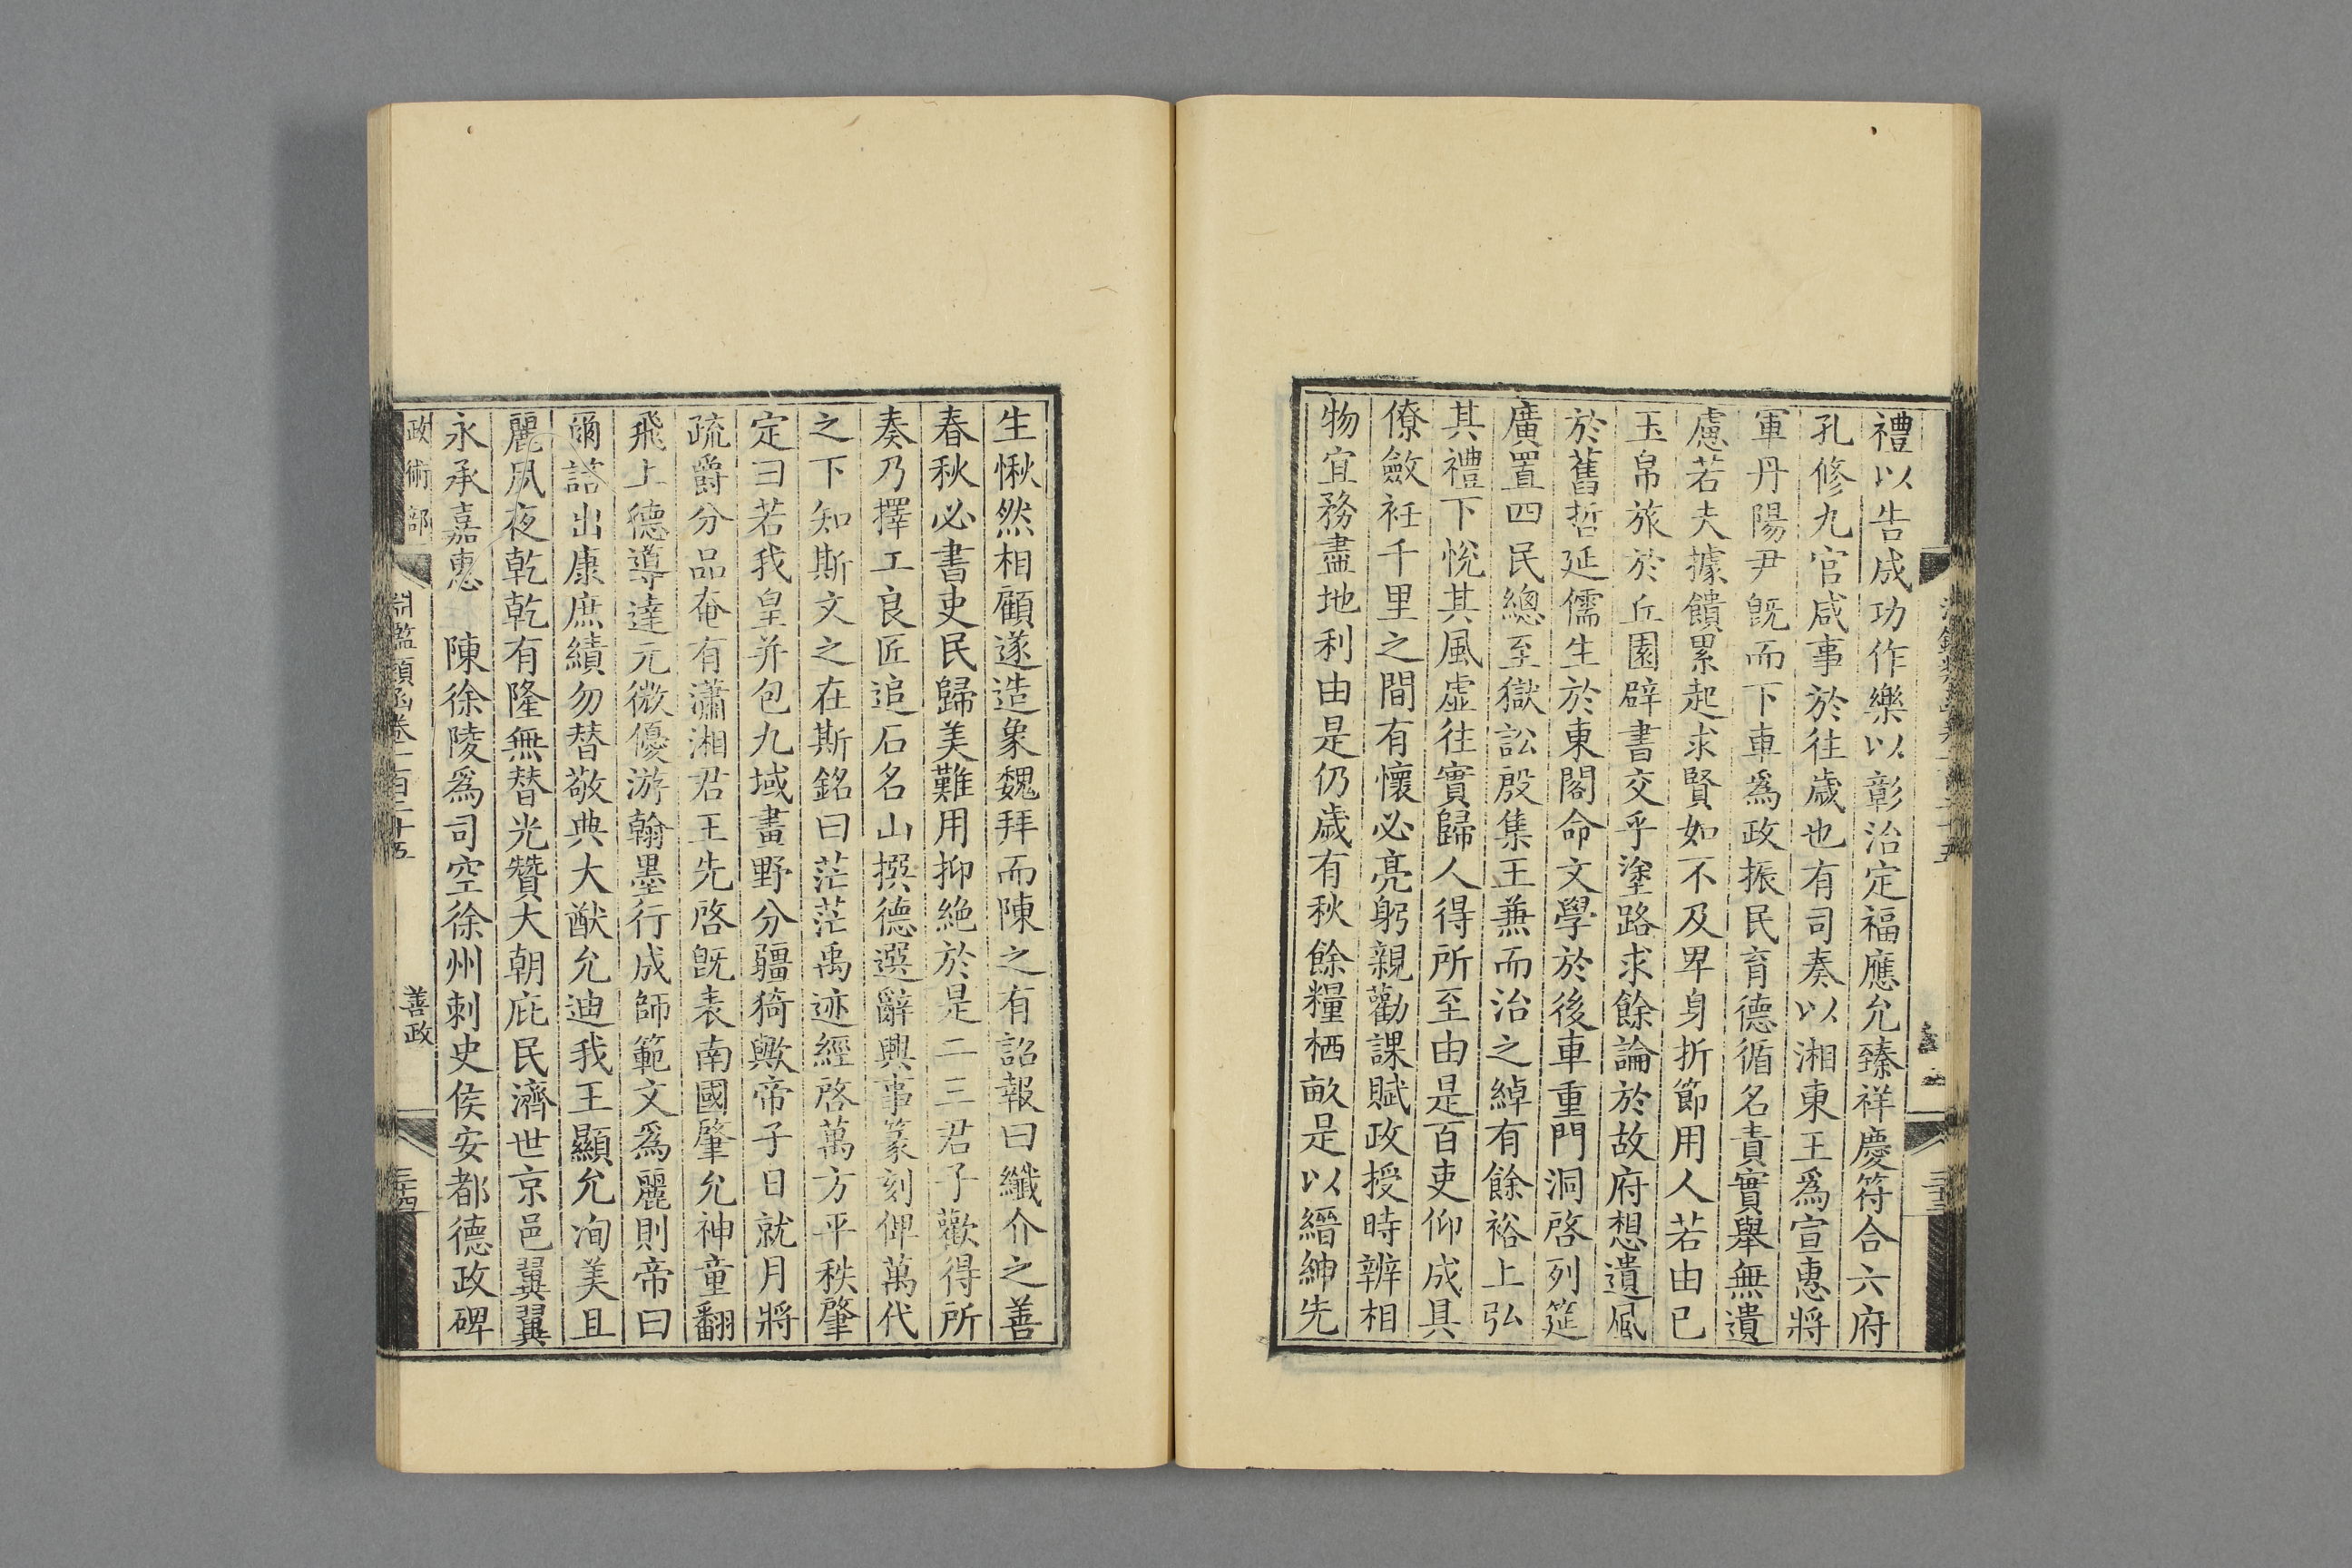 禮以告成功作樂以彰治定福應允臻祥慶符合六府
孔修九官咸事於往歲也有司奏以湘東王爲宣惠將
軍丹陽尹旣而下車爲政振民育德循名責實舉無遺
慮若夫據饋累起求賢如不及卑身折節用人若由已
玉帛旅於丘園辟書交乎塗路求餘論於故府想遺風
於舊哲延儒生於東閣命文學於後車重門洞啓列筵
廣置四民總至獄訟殷集王兼而治之綽有餘裕上弘
其禮下悅其風虛往實歸人得所至由是百吏仰成具
僚斂衽千里之間有懷必亮躬親勸課賦政授時辨相
物宜務盡地利由是仍歲有秋餘糧栖畝是以縉紳先
生愀然相顧遂造象魏拜而陳之有詔報曰纖介之善
春秋必書吏民歸美難用抑絕於是二三君子歡得所
奏乃擇工良匠追石名山撰德選辭興事篆刻俾萬代
之下知斯文之在斯銘曰茫茫禹迹經啓萬方平秩肇
定曰若我皇并包九域畫野分疆猗歟帝子日就月將
疏爵分品奄有瀟湘君王先啓旣表南國肇允神童翻
飛上德導達元微優游翰墨行成師範文爲麗則帝曰
爾諮出康庶績勿替敬典大猷允迪我王顯允洵美且
麗夙夜乾乾有隆無替光贊大朝庇民濟世京邑翼翼
永承嘉惠　陳徐陵爲司空徐州刺史侯安都德政碑
政術部　淵鑑類函卷一百二十五　善政　三十四